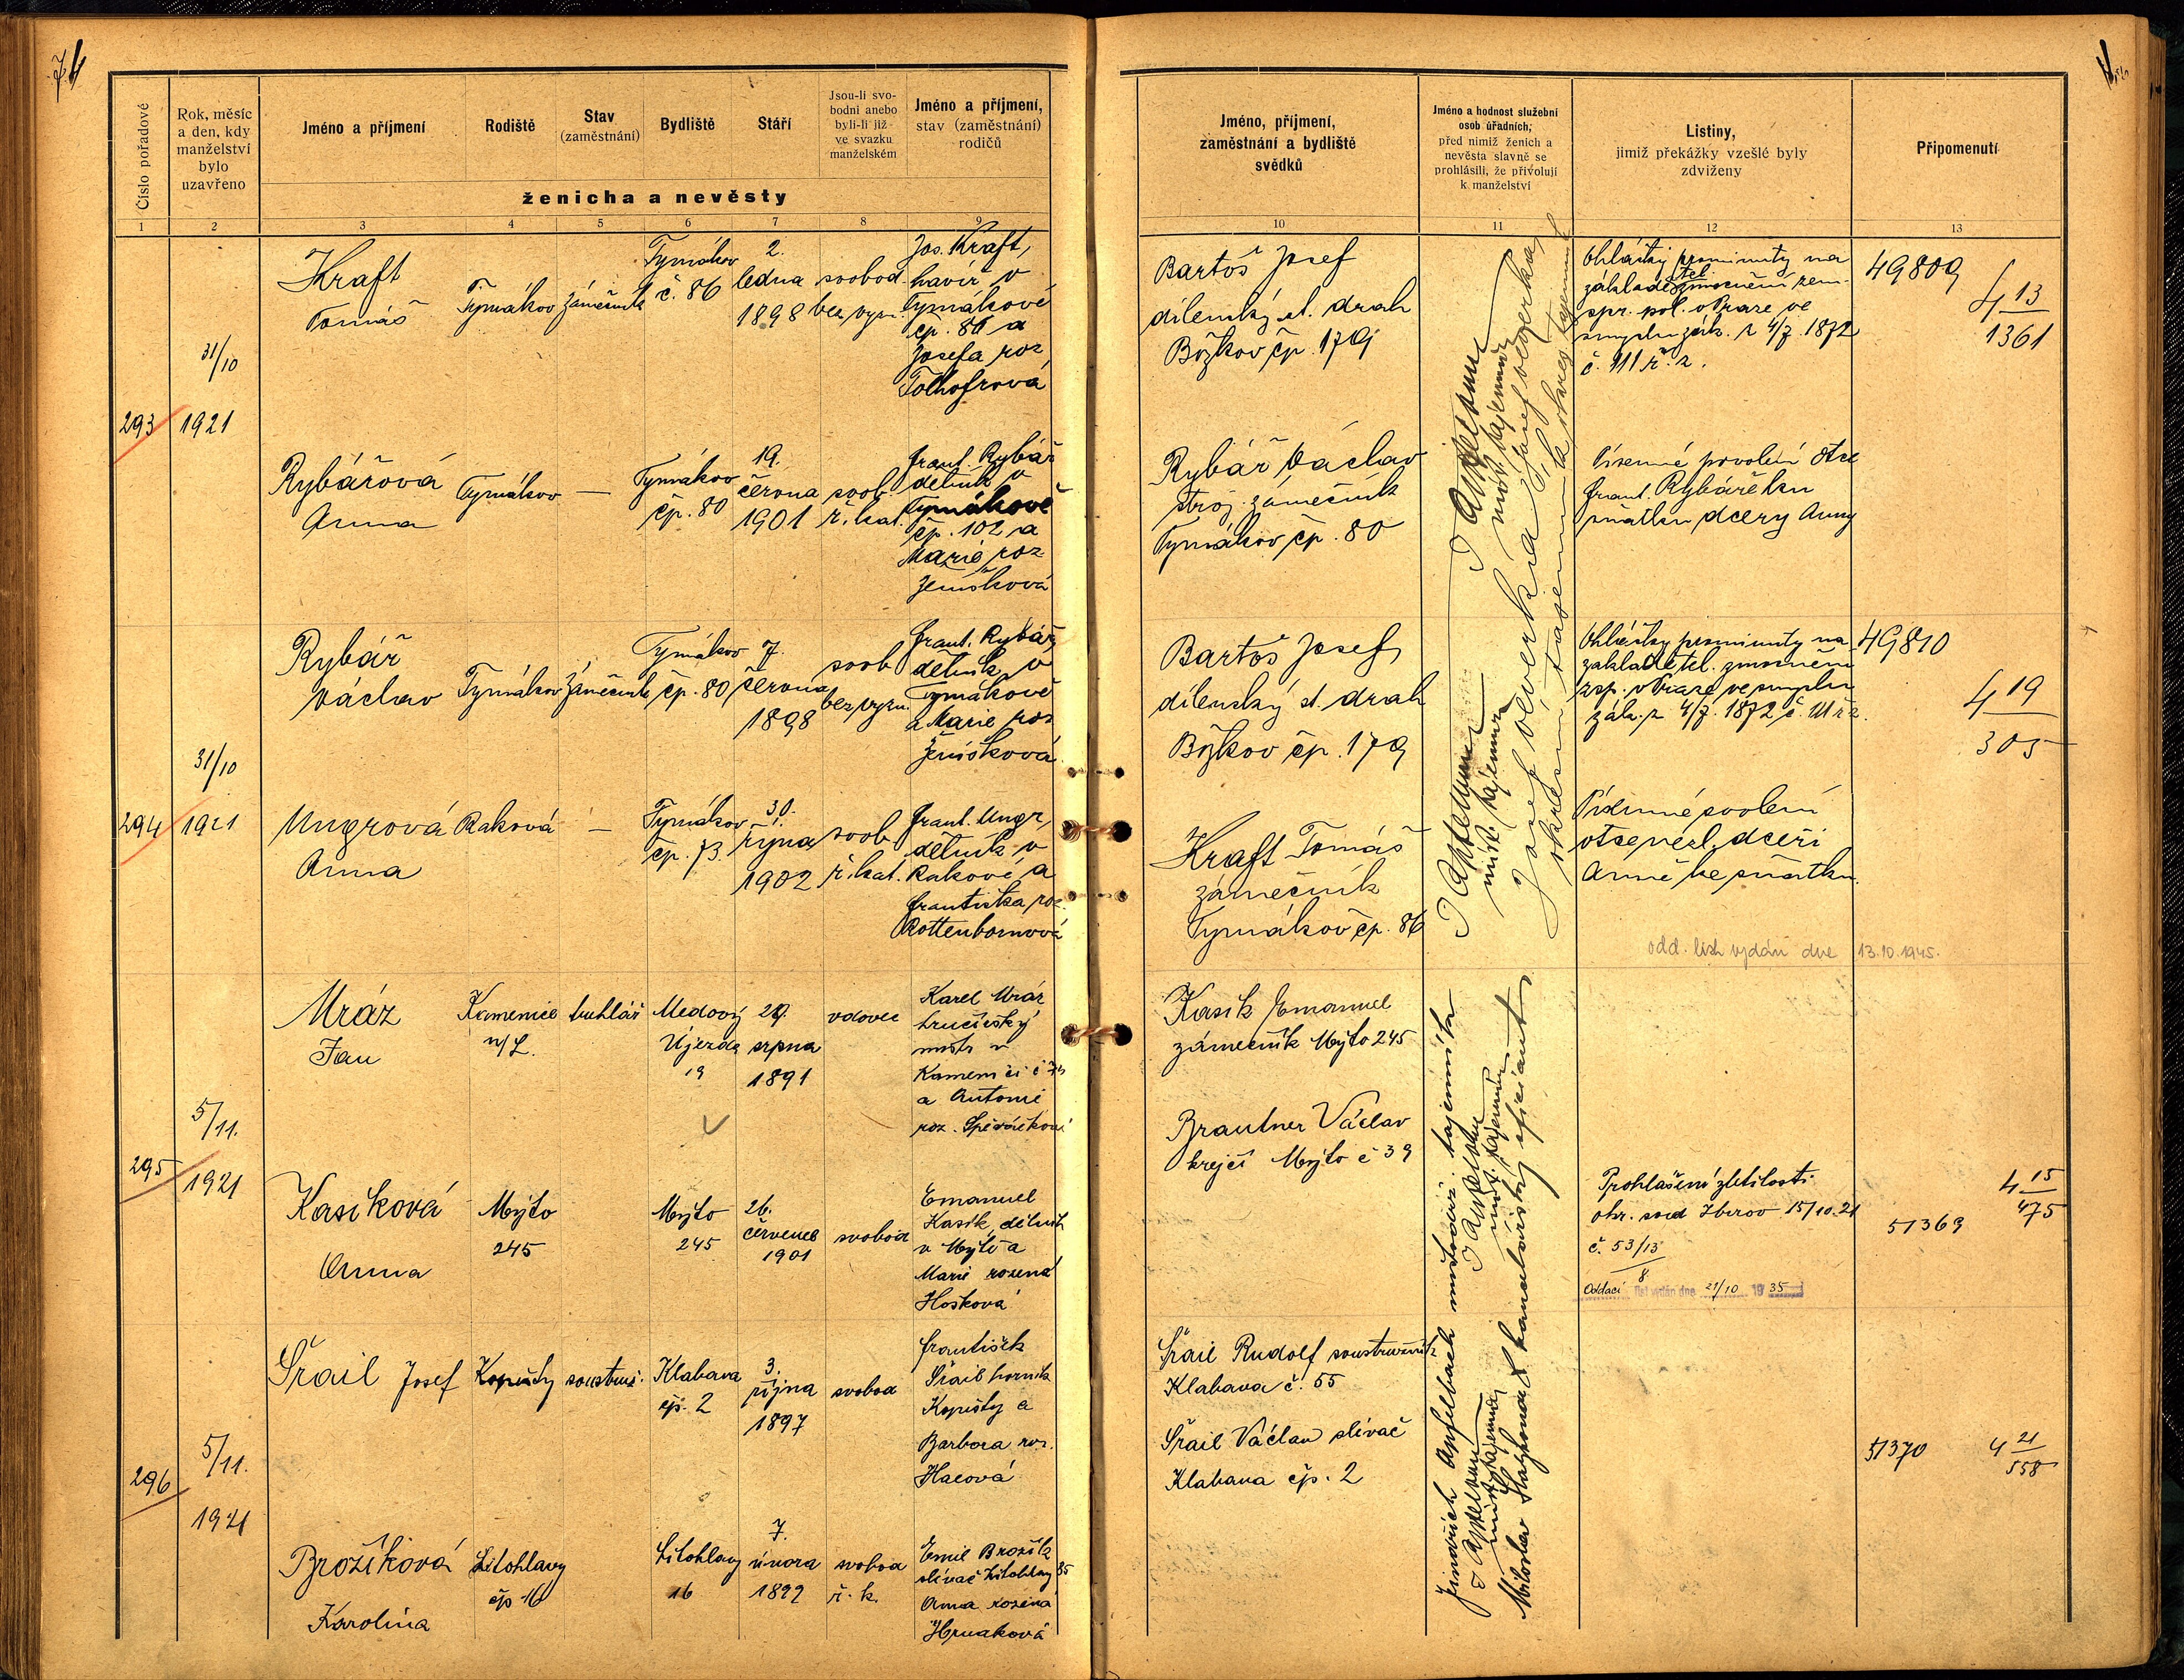 74
Číslo pořadové
Rok, měsíc
a den, kdy
manželství
bylo
uzavřeno
Jméno a příjmení
Rodiště
Stav
(zaměstnání)
Bydliště
Stáří
Jsou-li svo-
bodni anebo
byli-li již
ve svazku
manželském
Jméno a příjmení,
stav (zaměstnání)
rodičů
ženicha a nevěsty
1 2 3 4 5 6 7 8 9
293
31/10
1921
Kraft
Tomáš
Tymákov
zámečník
Tymákov
č. 86
2.
ledna
1898
svobod.
bez vyzn.
Jos. Kraft,
havíř v
Tymákově
čp. 86 a
Josefa roz
Rybářová
Anna
Tymákov
—
Tymákov
čp. 80
19.
června
1901
svob.
ř. kat.
Frant. Rybář
dělník v
Tymákově
čp. 102 a
Marie roz
Ženíšková
294
31/10
1921
Rybář
Václav
Tymákov
zámečník
Tymákov
čp. 80
7.
června
1898
svob
bez vyzn.
Frant. Rybář,
dělník v
Tymákově
a Marie roz
Ženíšková
Ungrová
Anna
Raková
—
Tymákov
čp. 73.
30.
října
1902
svob
ř. kat.
Frant. Ungr,
dělník v
Rakové a
Františka roz.
Rottenbornová
295
5/11.
1921
Mráz
Jan
Kamenice
n/L.
truhlář
Medový
Újezd
19
29.
srpna
1891
vdovec
Karel Mráz
mistr v
Kamenici č
a Antonie
roz.
Kasíková
Anna
Mýto
245
Mýto
245
26.
července
1901
svobod
Emanuel
Kasík, dělník
v Mýtě a
Marie rozená
Hosková
296
5/11.
1921
Šrail Josef
Kopisty
soustruž.
Klabava
čp. 2
3.
října
1897
svobod
František
Šrail horník
Kopisty a
Barbora roz.
Hacová
Brožíková
Karolína
Litohlavy
čp 16
Litohlavy
16
7.
února
1899
svobod
ř. k.
Emil Brožík
slévač Litohlavy 85
Anna rozená
Hrnaková
Jméno, příjmení,
zaměstnání a bydliště
svědků
Jméno a hodnost služební
osob úřadních,
před nimiž ženich a
nevěsta slavně se
prohlásili, že přivolují
k manželství
Listiny,
jimiž překážky vzešlé byly
zdviženy
Připomenutí
10 11 12 13
Bartoš Josef
dílenský st. drah
Božkov čp. 179
Ohlášky prominuty na
základě tel. zmocnění zem.
spr. pol. v Praze ve
smyslu zák. z 4/7. 1872
č. 111 ř. z.
49809
4 13
1361
Rybář Václav
stroj. zámečník
Tymákov čp. 80
Písemné povolení otce
Frant. Rybáře ku
sňatku dcery Anny
Bartoš Josef
dílenský st. drah
Božkov čp. 179
Ohlášky prominuty na
základě tel. zmocnění
zsp. v Praze ve smyslu
zák. z 4/7. 1872 č. 111 ř z.
49810
4 19
305
Kraft Tomáš
zámečník
Tymákov čp. 86
Písemné svolení
otce nezl. dceři
Anně ke sňatku.
odd. list vydán dne 13.10.1945.
Kasík Emanuel
zámečník Mýto 245
Brautner Václav
krejčí Mýto č 39
Prohlášení zletilosti
okr. soud Zbirov 15/10.21
č. 53/13
8
Oddací list vydán dne 21/10 1935
51369
4 15
475
Šrail Rudolf soustružník
Klabava č. 55
Šrail Václav slévač
Klabava čp. 2
51370
4 21
558